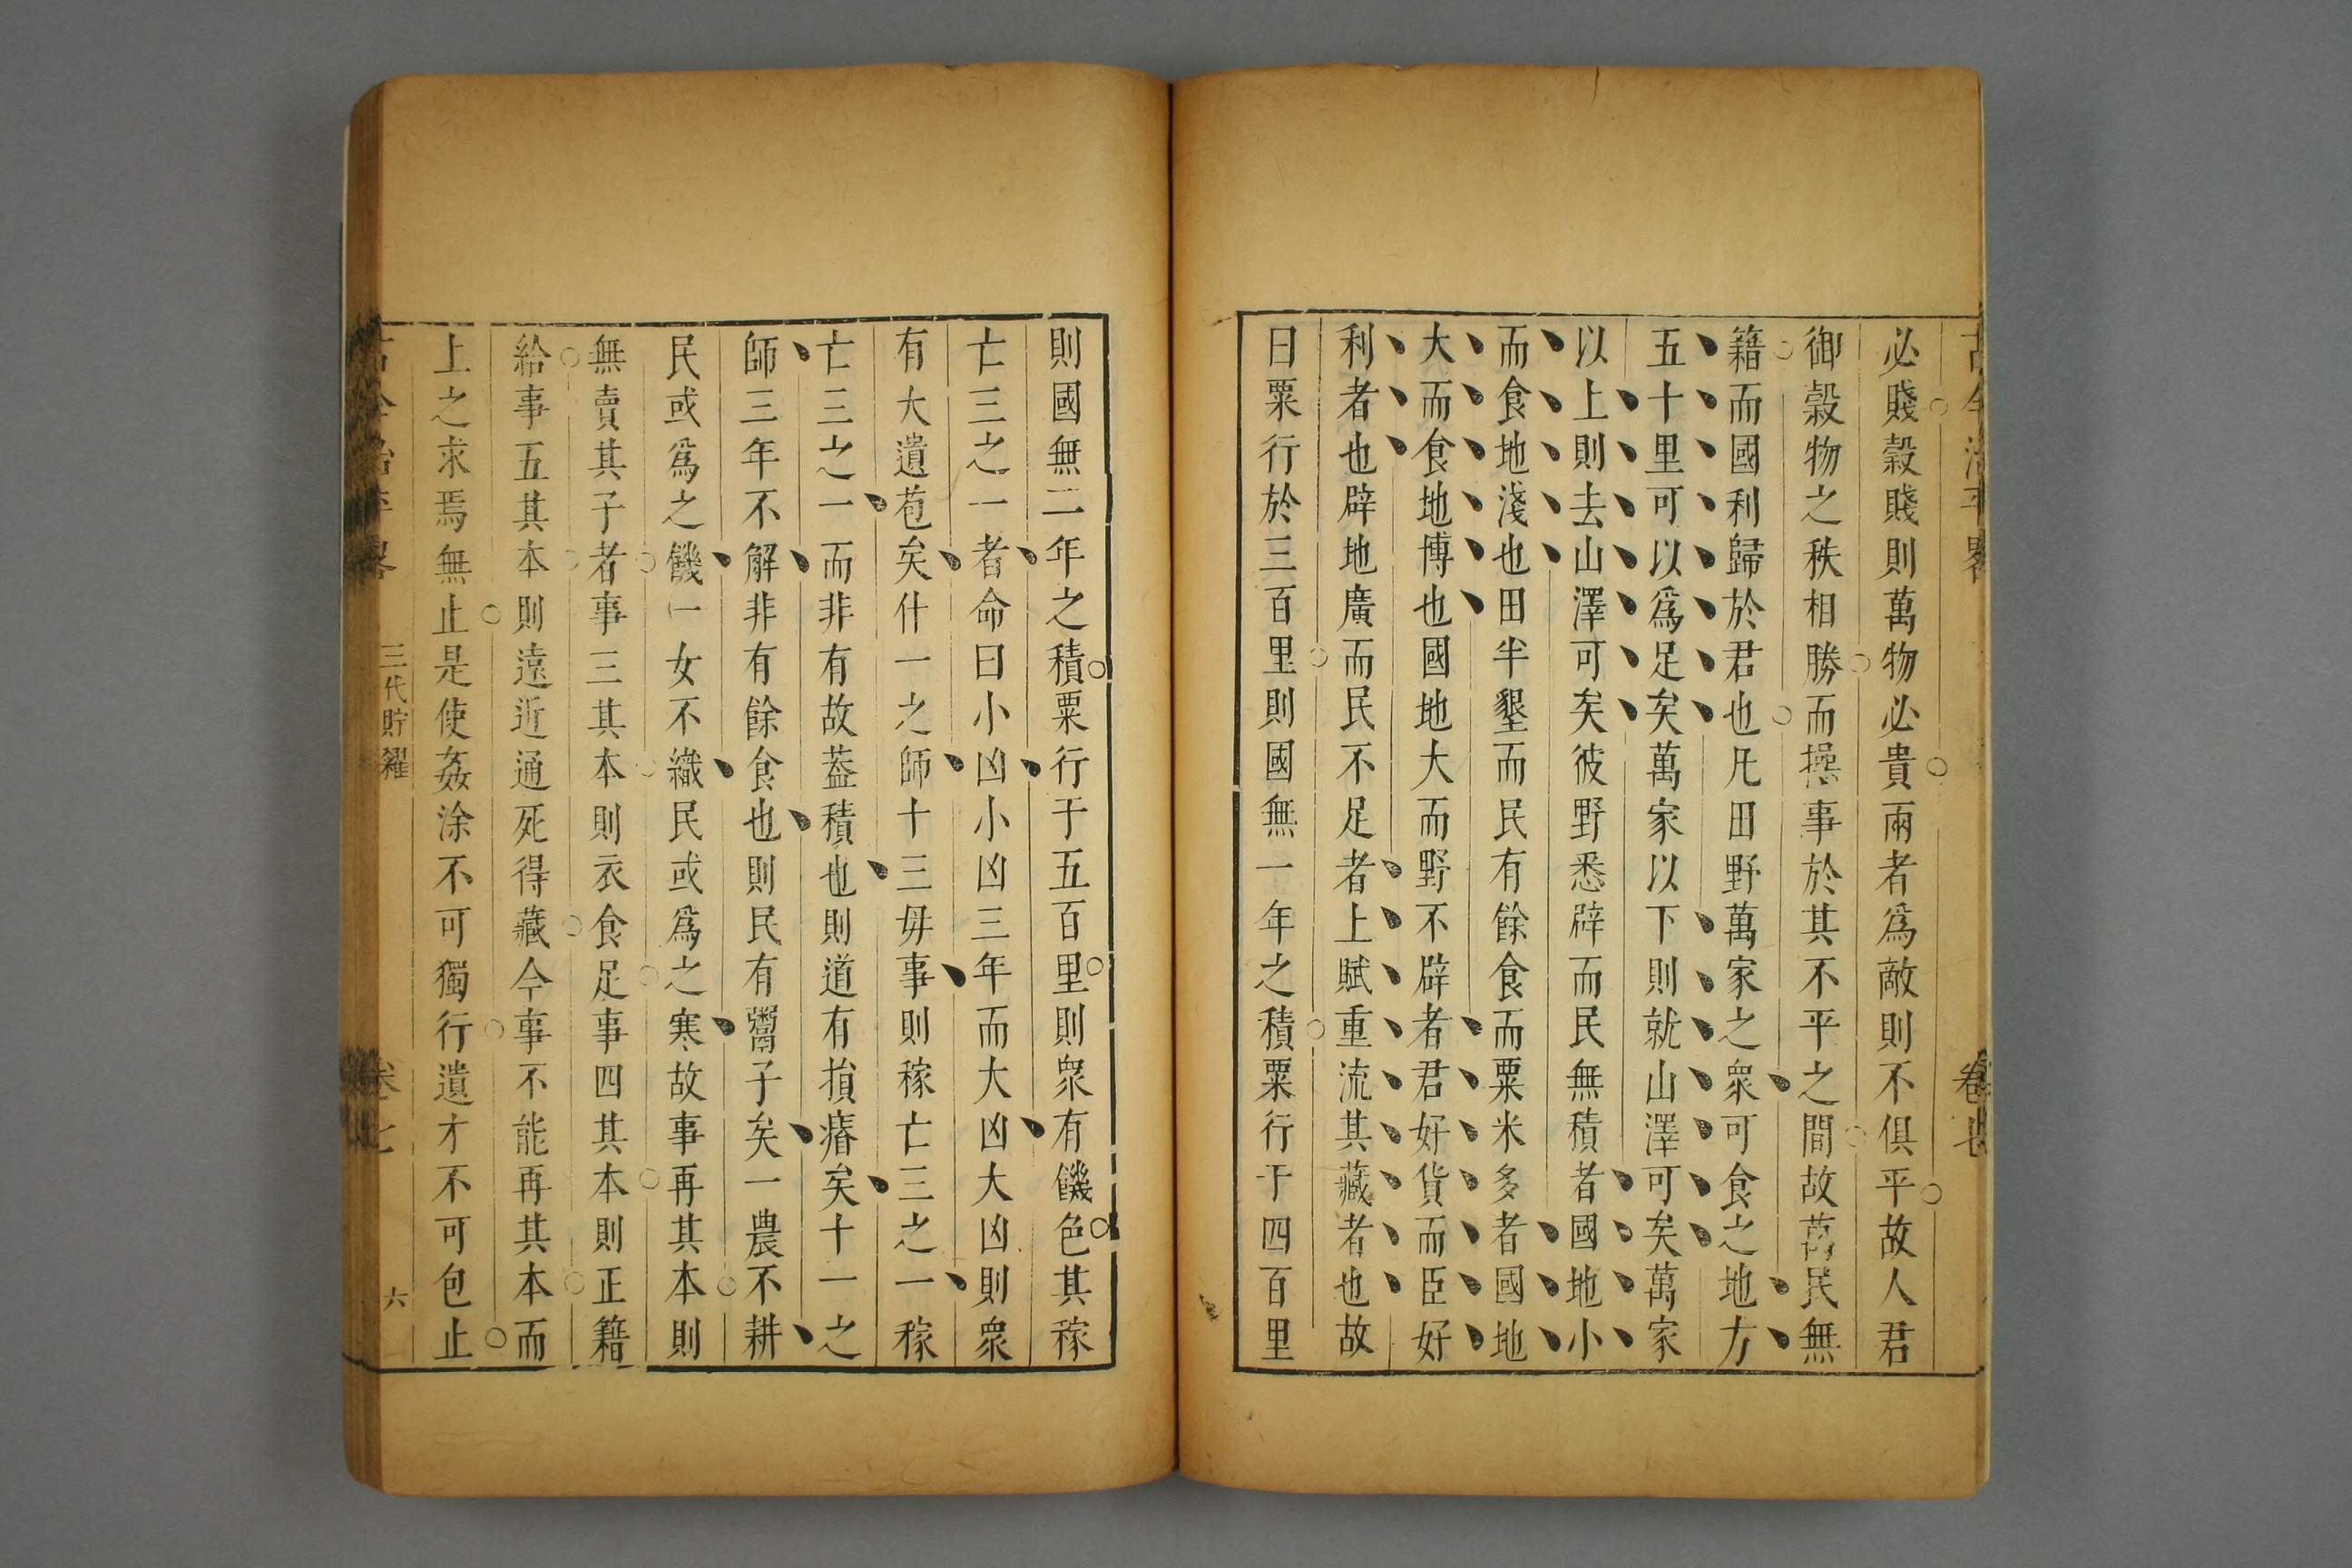 古今治平畧
卷七
必賤穀賤則萬物必貴兩者爲敵則不俱平故人君
御穀物之秩相勝而操事於其不平之間故萬民無
籍而國利歸於君也凡田野萬家之衆可食之地方
五十里可以爲足矣萬家以下則就山澤可矣萬家
以上則去山澤可矣彼野悉辟而民無積者國地小
而食地淺也田半墾而民有餘食而粟米多者國地
大而食地博也國地大而野不辟者君好貨而臣好
利者也辟地廣而民不足者上賦重流其藏者也故
曰粟行於三百里則國無一年之積粟行于四百里
則國無二年之積粟行于五百里則衆有饑色其稼
亡三之一者命曰小凶小凶三年而大凶大凶則衆
有大遺苞矣什一之師十三毋事則稼亡三之一稼
亡三之一而非有故葢積也則道有損瘠矣十一之
師三年不解非有餘食也則民有鬻子矣一農不耕
民或爲之饑一女不織民或爲之寒故事再其本則
無賣其子者事三其本則衣食足事四其本則正籍
給事五其本則遠近通死得藏今事不能再其本而
上之求焉無止是使姦涂不可獨行遺才不可包止
古今治平畧
三代貯糴
卷七
六